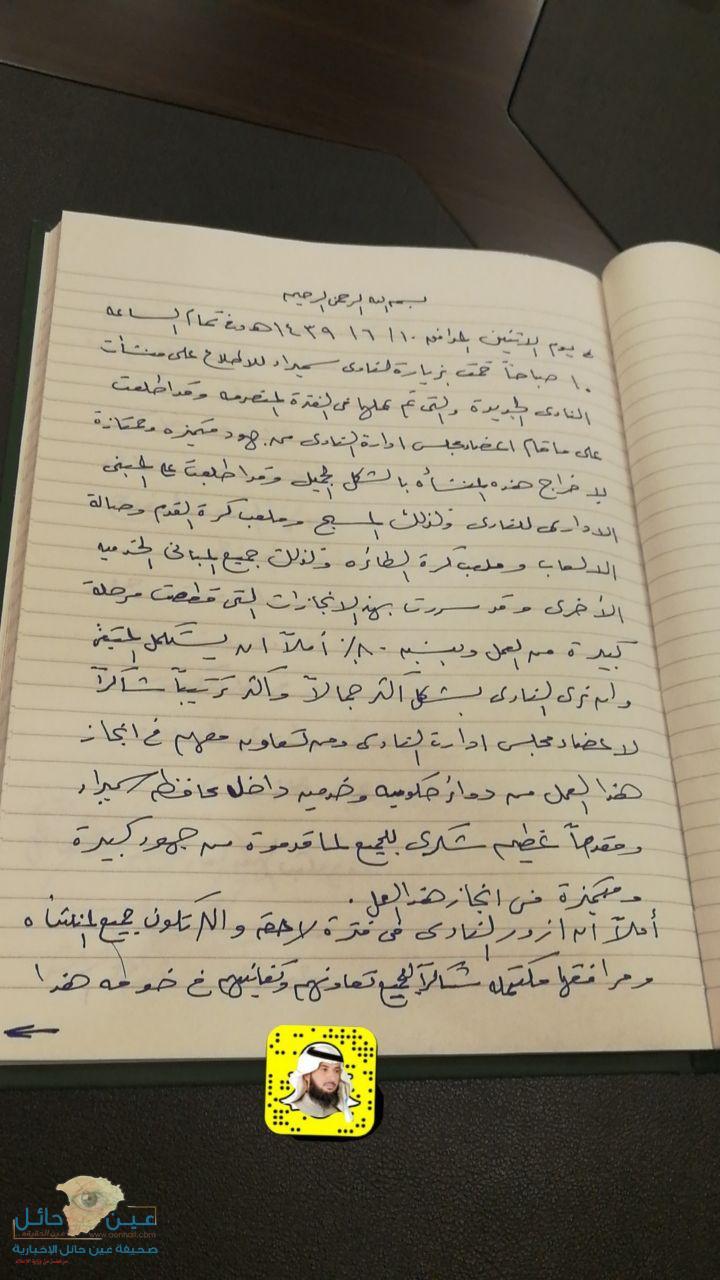 بسم الله الرحمن الرحيم
في يوم الاثنين الموافق ١٠/ ٦/ ١٤٣٩هـ وفي تمام الساعه
١٠ صباحاً قمت بزيارة لنادي سميراء للاطلاع على منشآت
النادي الجديدة والتي تم عملها في الفترة المنصرمه وقد اطلعت
على ما قام اعضاء مجلس ادارة النادي من جهود مميزه وممتازة
لإخراج هذه المنشأه بالشكل الجميل وقد اطلعت على المبنى
الاداري للنادي وكذلك المسبح وملعب كرة القدم وصالة
الالعاب وملعب كرة الطائره وكذلك جميع المباني الخدميه
الأخرى وقد سررت بهذه الانجازات التي قطعت مرحلة
كبيرة من العمل وبنسبه ٨٠٪ أملاً ان يستكمل المتبقي
وان نرى النادي بشكل أكثر جمالاً وأكثر ترتيباً شاكراً
لاعضاء مجلس ادارة النادي ومن تعاون معهم في انجاز
هذا العمل من دوائر حكوميه وخدميه داخل محافظة سميراء
ومقدماً عظيم شكري للجميع لما قدموة من جهود كبيرة
ومميزة في انجاز هذا العمل .
أملاً ان ازور النادي في فترة لاحقة و تكون جميع المنشأه
ومرافقها مكتمله شاكراً للجميع تعاونهم وتفانيهم في هذا
عين حائل
www.aenhail.com
صحيفة عين حائل الإخبارية